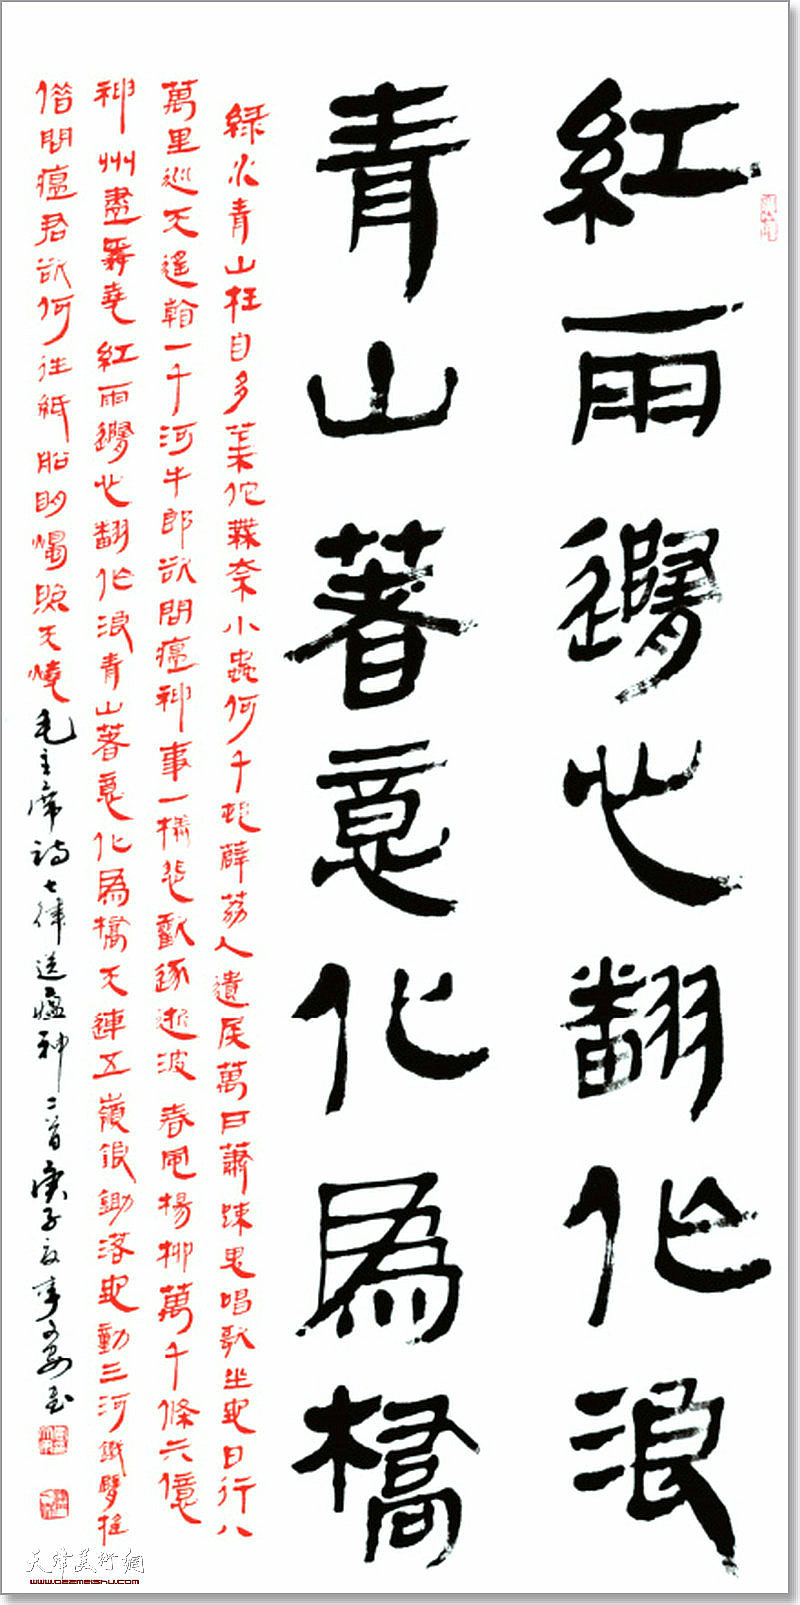 紅雨隨心翻作浪
青山著意化為橋
綠水青山枉自多華佗無奈小蟲何千村薜荔人遺屎萬戶蕭疏鬼唱歌坐地日行八
萬里巡天遙看一千河牛郎欲問瘟神事一樣悲歡逐逝波春風楊柳萬千條六億
神州盡舜堯紅雨隨心翻作浪青山著意化為橋天連五嶺銀鋤落地動三河鐵臂搖
借問瘟君欲何往紙船明燭照天燒毛主席詩七律送瘟神二首庚子
天津美術網
www.022meishu.com